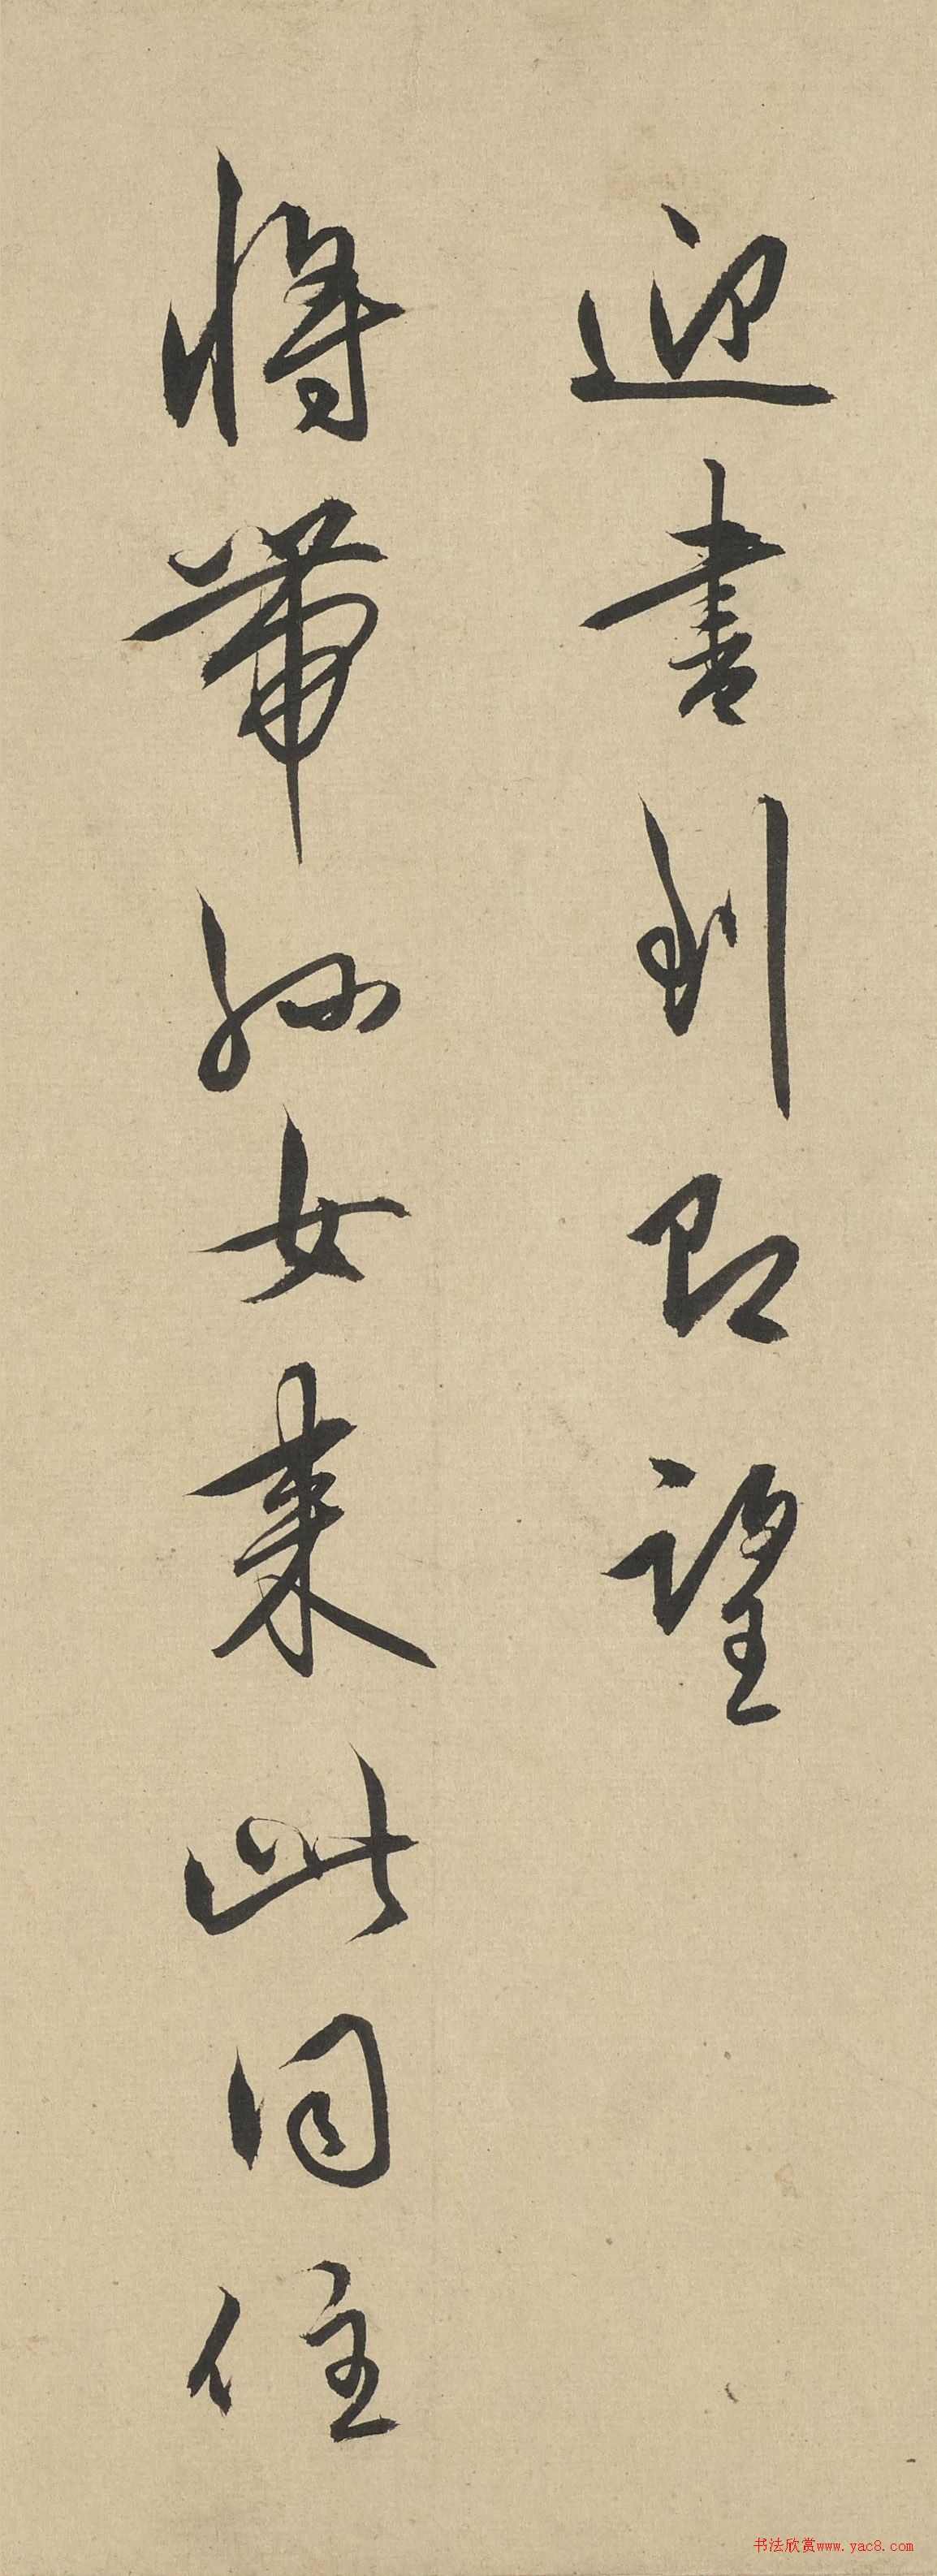 迎書到即望
將帶孫女來此同住
书法欣赏www.yac8.com